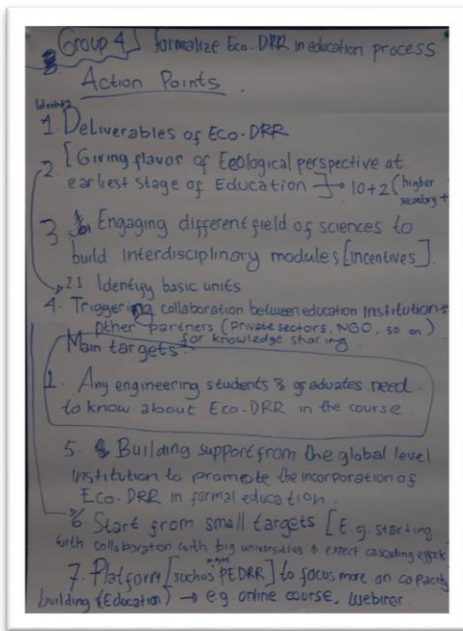 Group 4] formalize Eco-DRR in education process
Action Points
Identify
1. Deliverables of Eco-DRR
2. [Giving flavor of Ecological perspective at
earliest stage of Education] → 10+2 (higher
secondary +
3 Engaging different field of sciences to
build interdisciplinary modules [incentives].
2.1 Identify basic units
4. Triggering collaboration between education institution +
other partners (private sectors, NGO, so on)
for knowledge sharing
Main targets
1. Any engineering students & graduates need
to know about Eco-DRR in the course
5. Building support from the global level
institution to promote the incorporation of
Eco-DRR in formal education.
6. Start from small targets [E.g. starting
with collaboration with big universities & expect cascading effect
7. Platform [such as PEDRR] to focus more on capacity
building (Education) → e.g. online course, webinar.